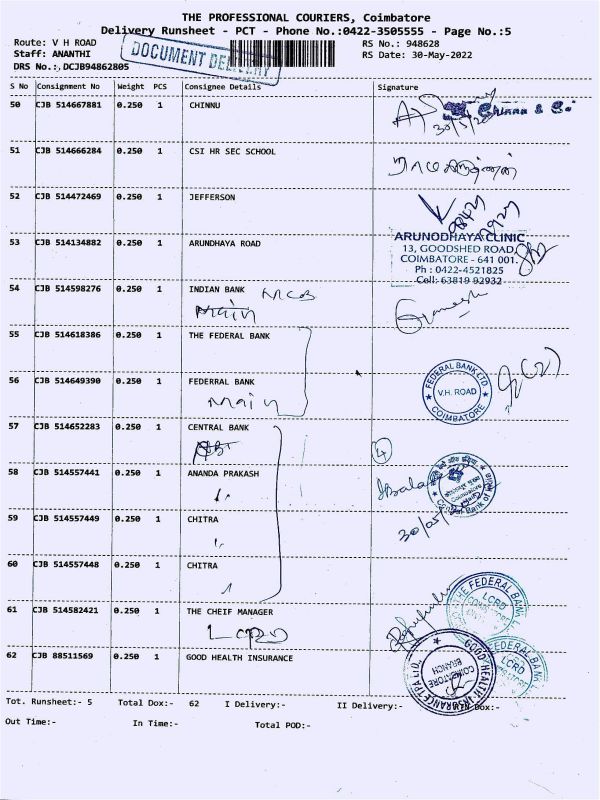 THE PROFESSIONAL COURIERS, Coimbatore
Delivery Runsheet - PCT - Phone No.:0422-3505555 - Page No.:5
Route: V H ROAD RS No.: 948628
Staff: ANANTHI RS Date: 30-May-2022
DRS No.:,DCJB94862805
DOCUMENT DELIVERY
S No Consignment No Weight PCS Consignee Details Signature
50 CJB 514667881 0.250 1 CHINNU
Chinnu & Co
51 CJB 514666284 0.250 1 CSI HR SEC SCHOOL
52 CJB 514472469 0.250 1 JEFFERSON
53 CJB 514134882 0.250 1 ARUNDHAYA ROAD
ARUNODHAYA CLINIC
13, GOODSHED ROAD,
COIMBATORE - 641 001.
Ph : 0422-4521825
Cell: 63819 92932
54 CJB 514598276 0.250 1 INDIAN BANK MCB
Main
Ganesh
55 CJB 514618386 0.250 1 THE FEDERAL BANK
56 CJB 514649390 0.250 1 FEDERRAL BANK
Main
FEDERAL BANK LTD.
V.H. ROAD
COIMBATORE
57 CJB 514652283 0.250 1 CENTRAL BANK
4
58 CJB 514557441 0.250 1 ANANDA PRAKASH
Central Bank of India
59 CJB 514557449 0.250 1 CHITRA
60 CJB 514557448 0.250 1 CHITRA
61 CJB 514582421 0.250 1 THE CHEIF MANAGER
LCRD
THE FEDERAL BANK
LCRD
62 CJB 88511569 0.250 1 GOOD HEALTH INSURANCE
FEDERAL BANK
LCRD
GOOD HEALTH INSURANCE TPA LTD.
COIMBATORE
BRANCH
Tot. Runsheet:- 5 Total Dox:- 62 I Delivery:- II Delivery:- Dox:-
Out Time:- In Time:- Total POD:-